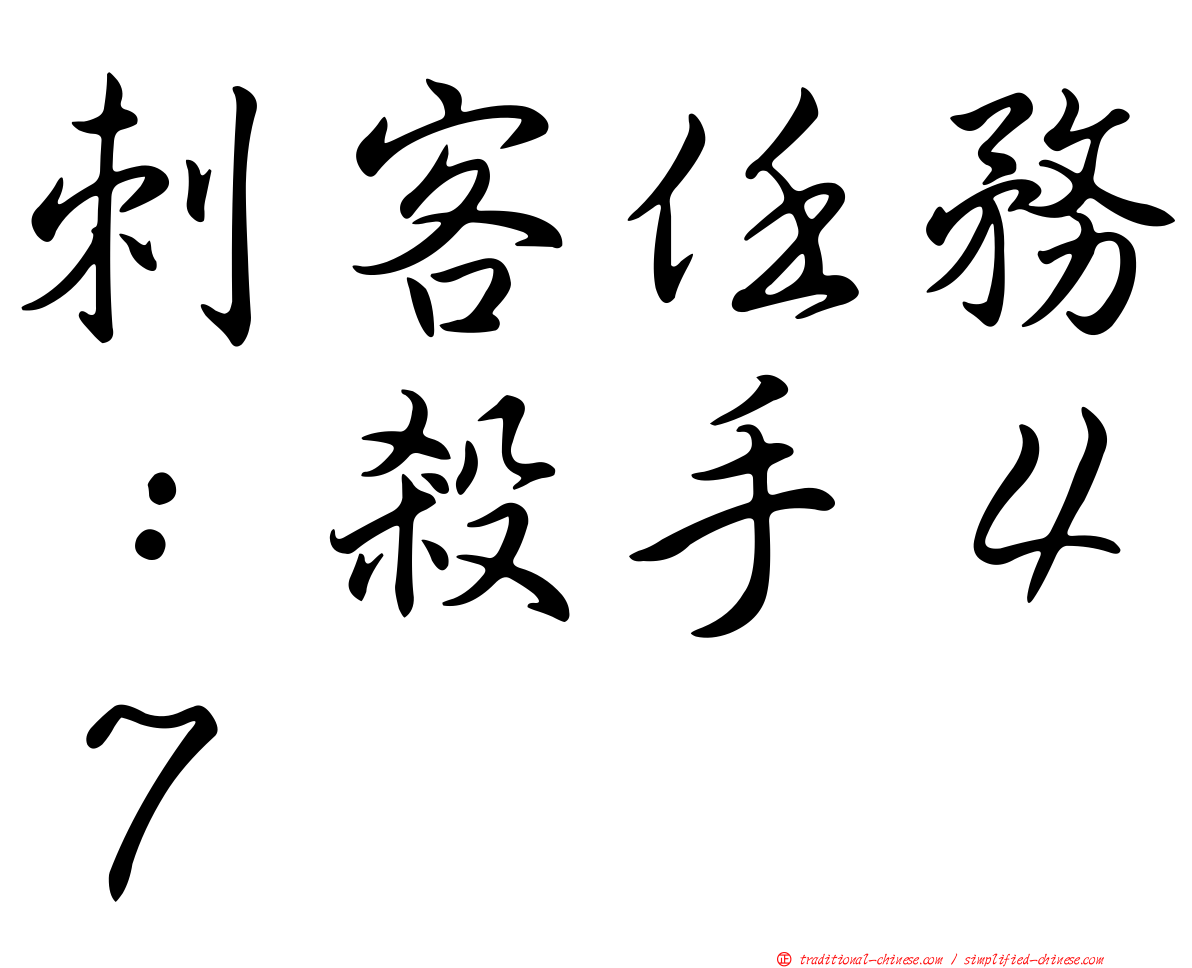 刺客任務
：殺手4
7
㊣ traditional-chinese.com / simplified-chinese.com